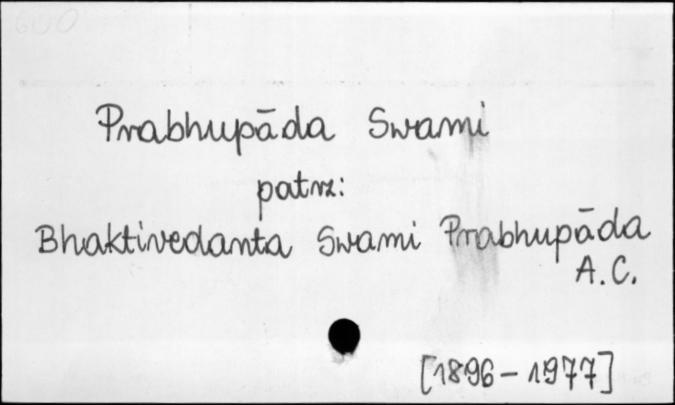 Prabhupāda Swami
patrz:
Bhaktivedanta Swami Prabhupāda
A.C.
[1896-1977]